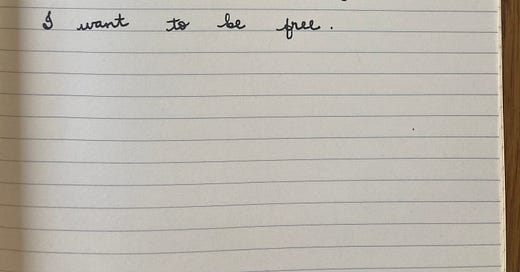 I want to be free.